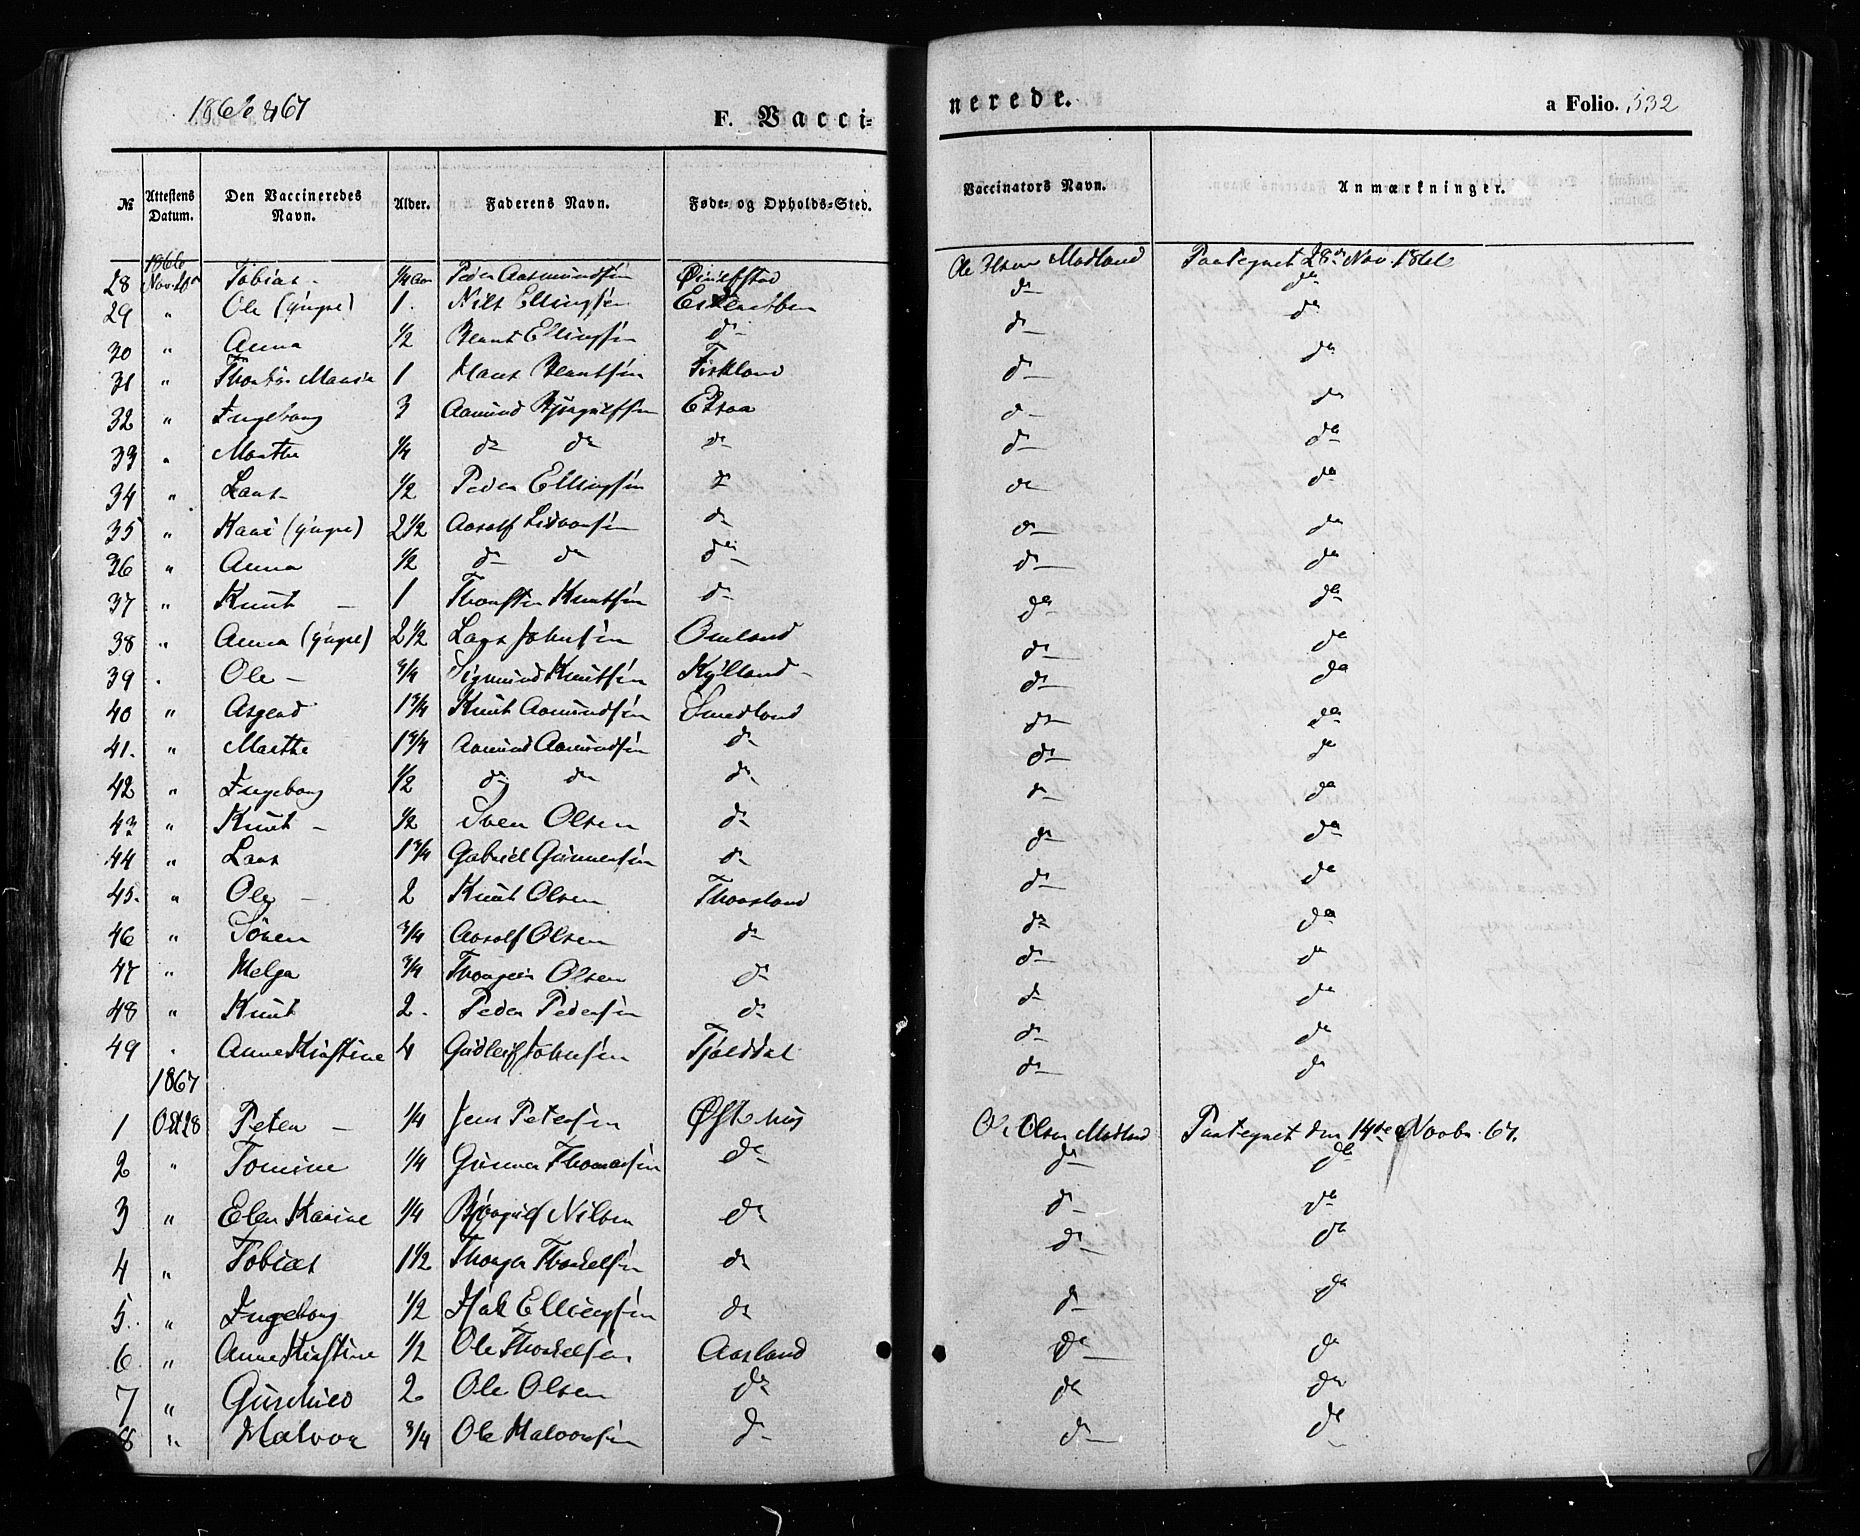 1866 & 67 F. Vacci- nerede. a Folio. 532
№ Attestens Datum. Den Vaccineredes Navn. Alder. Faderens Navn. Føde- og Opholds-Sted. Vaccinators Navn. Anmærkninger.
1866
28 Tobias 1/4 Aar Peder Aasmundsen Ole Olsen Modland Paategnet 28de Nov. 1866
29 " Ole (yngre) 1. Nils Ellingsen do do
30 " Anna 1/2 Bernt Ellingsen do do do
31 " 1 Hans Berntsen Fiskland do do
32 " Ingeborg 3 Aamund Bjørgulfsen Elsaa do do
33 " Marthe 1/4 do do do do do
34 " Lars 1/2 Peder Ellingsen do do do
35 " Kari (yngre) 2 1/2 Aasolf do do do
36 " Anna 1/2 do do do do do
37 " Knut 1 Thorsten Knutsen do do do
38 " Anna (yngre) 2 1/2 Lars Johnsen Omland do do
39 " Ole 3/4 Sigmund Knutsen Kylland do do
40 " Asgerd 1 3/4 Knut Aamundsen Smedland do do
41. " Marthe 1 3/4 Aamund Aamundsen do do do
42 " Ingeborg 1/2 do do do do do
43 " Knut 1/2 Sven Olsen do do do
44 " Lars 1 3/4 Gabriel Gunnersen do do do
45. " Ole 2 Knut Olsen Thorsland do do
46 " Sören 3/4 Aasolf Olsen do do do
47 " Helga 3/4 Thorgeir Olsen do do do
48 " Knut 2. Peder Pedersen do do do
49 " Anne Kirstine 4 Gudleif Johnsen Tjølddal do do
1867
1 Oct 28 Peter 1/4 Jens Petersen Østehus Ole Olsen Modland Paategnet den 14de Novbr. 67.
2 " Tomine 1/4 Gunner Thomassen do do do
3 " Elen Karine 1/4 Bjørgulf Nilsen do do do
4 " Tobias 1 1/2 Thorger Thorkelsen do do do
5. " Ingeborg 1/2 Ellingsen do do do
6. " Anne Kirstine 1/2 Ole Thorkelsen Aasland do do
7 " 2. Ole Olsen do do do
8 " Halvor 3/4 Ole Halvorsen do do do